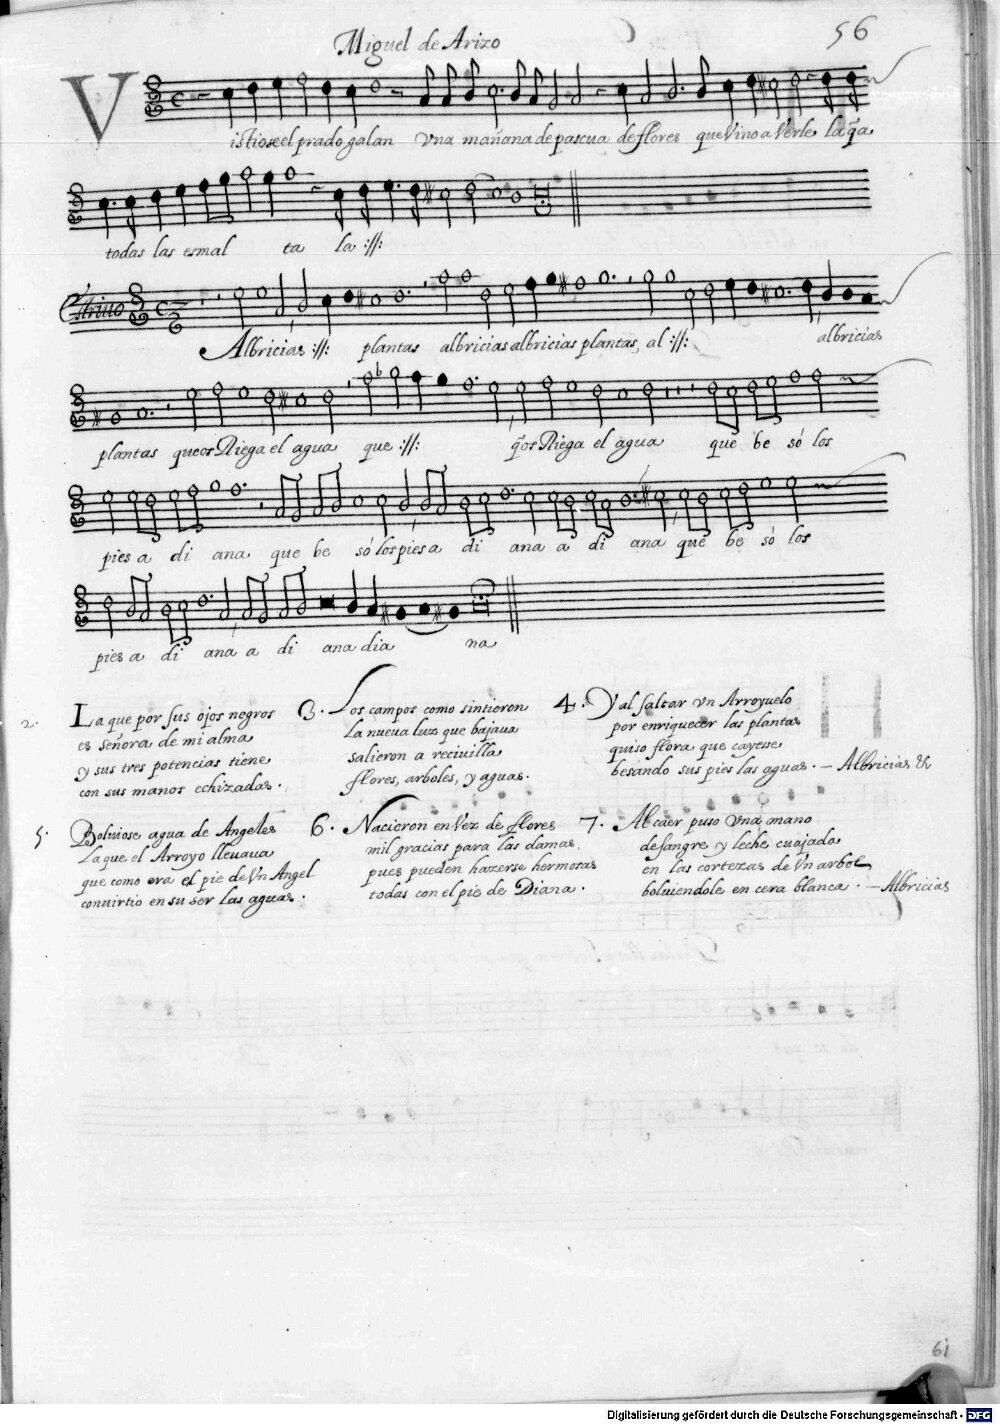 Miguel de Arizo
56
Vistiose el prado galan vna mañana de pascua de flores que vino a verle la q̃a
todas las esmal ta la ://:
Estriuo
Albricias ://: plantas albricias albricias plantas, al ://: albricias
plantas que os Riega el agua que ://: q̃os Riega el agua que be só los
pies a di ana que be só los pies a di ana a di ana que be só los
pies a di ana a di ana dia na
2. La que por sus ojos negros
es señora de mi alma
y sus tres potencias tiene
con sus manos echizadas.
3. Los campos como sintieron
la nueva luz que bajaua
salieron a reciuilla
flores, arboles, y aguas.
4. Y al saltar vn Arroyuelo
por enriquecer las plantas
quiso flora que cayesse
besando sus pies las aguas. — Albricias &
5. Boluiose agua de Angeles
la que el Arroyo lleuaua
que como era el pie de Vn Angel
conuirtio en su ser las aguas.
6. Nacieron en Vez de flores
mil gracias para las damas.
pues pueden hazerse hermosas
todas con el pie de Diana.
7. Al caer puso vna mano
de sangre y leche cuajado
en las cortezas de Vn arbol
boluiendole en cera blanca. — Albricias
61
Digitalisierung gefördert durch die Deutsche Forschungsgemeinschaft - DFG